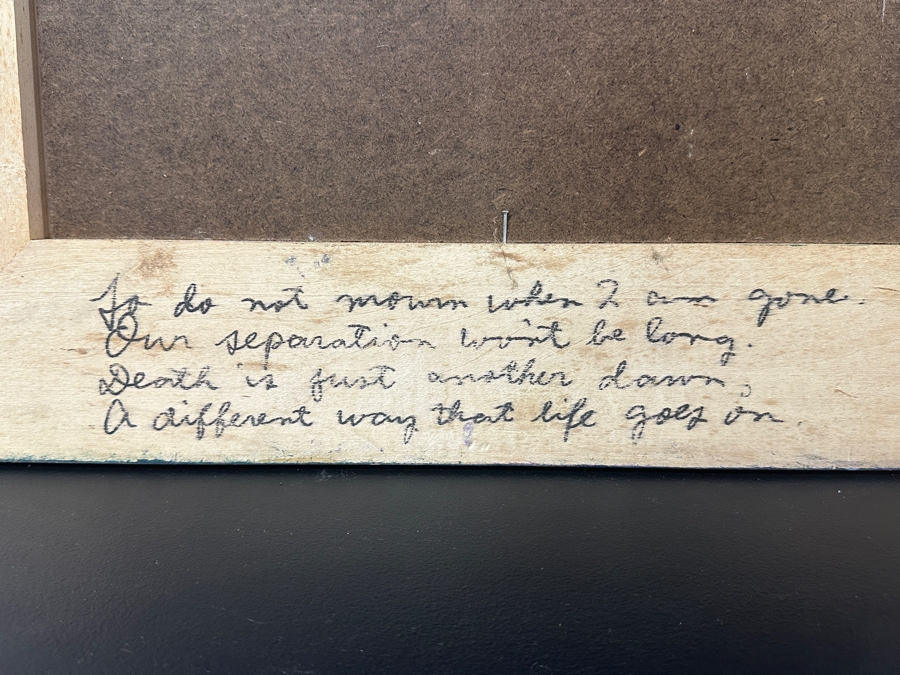 So do not mourn when I am gone.
Our separation won't be long.
Death is just another dawn,
A different way that life goes on.